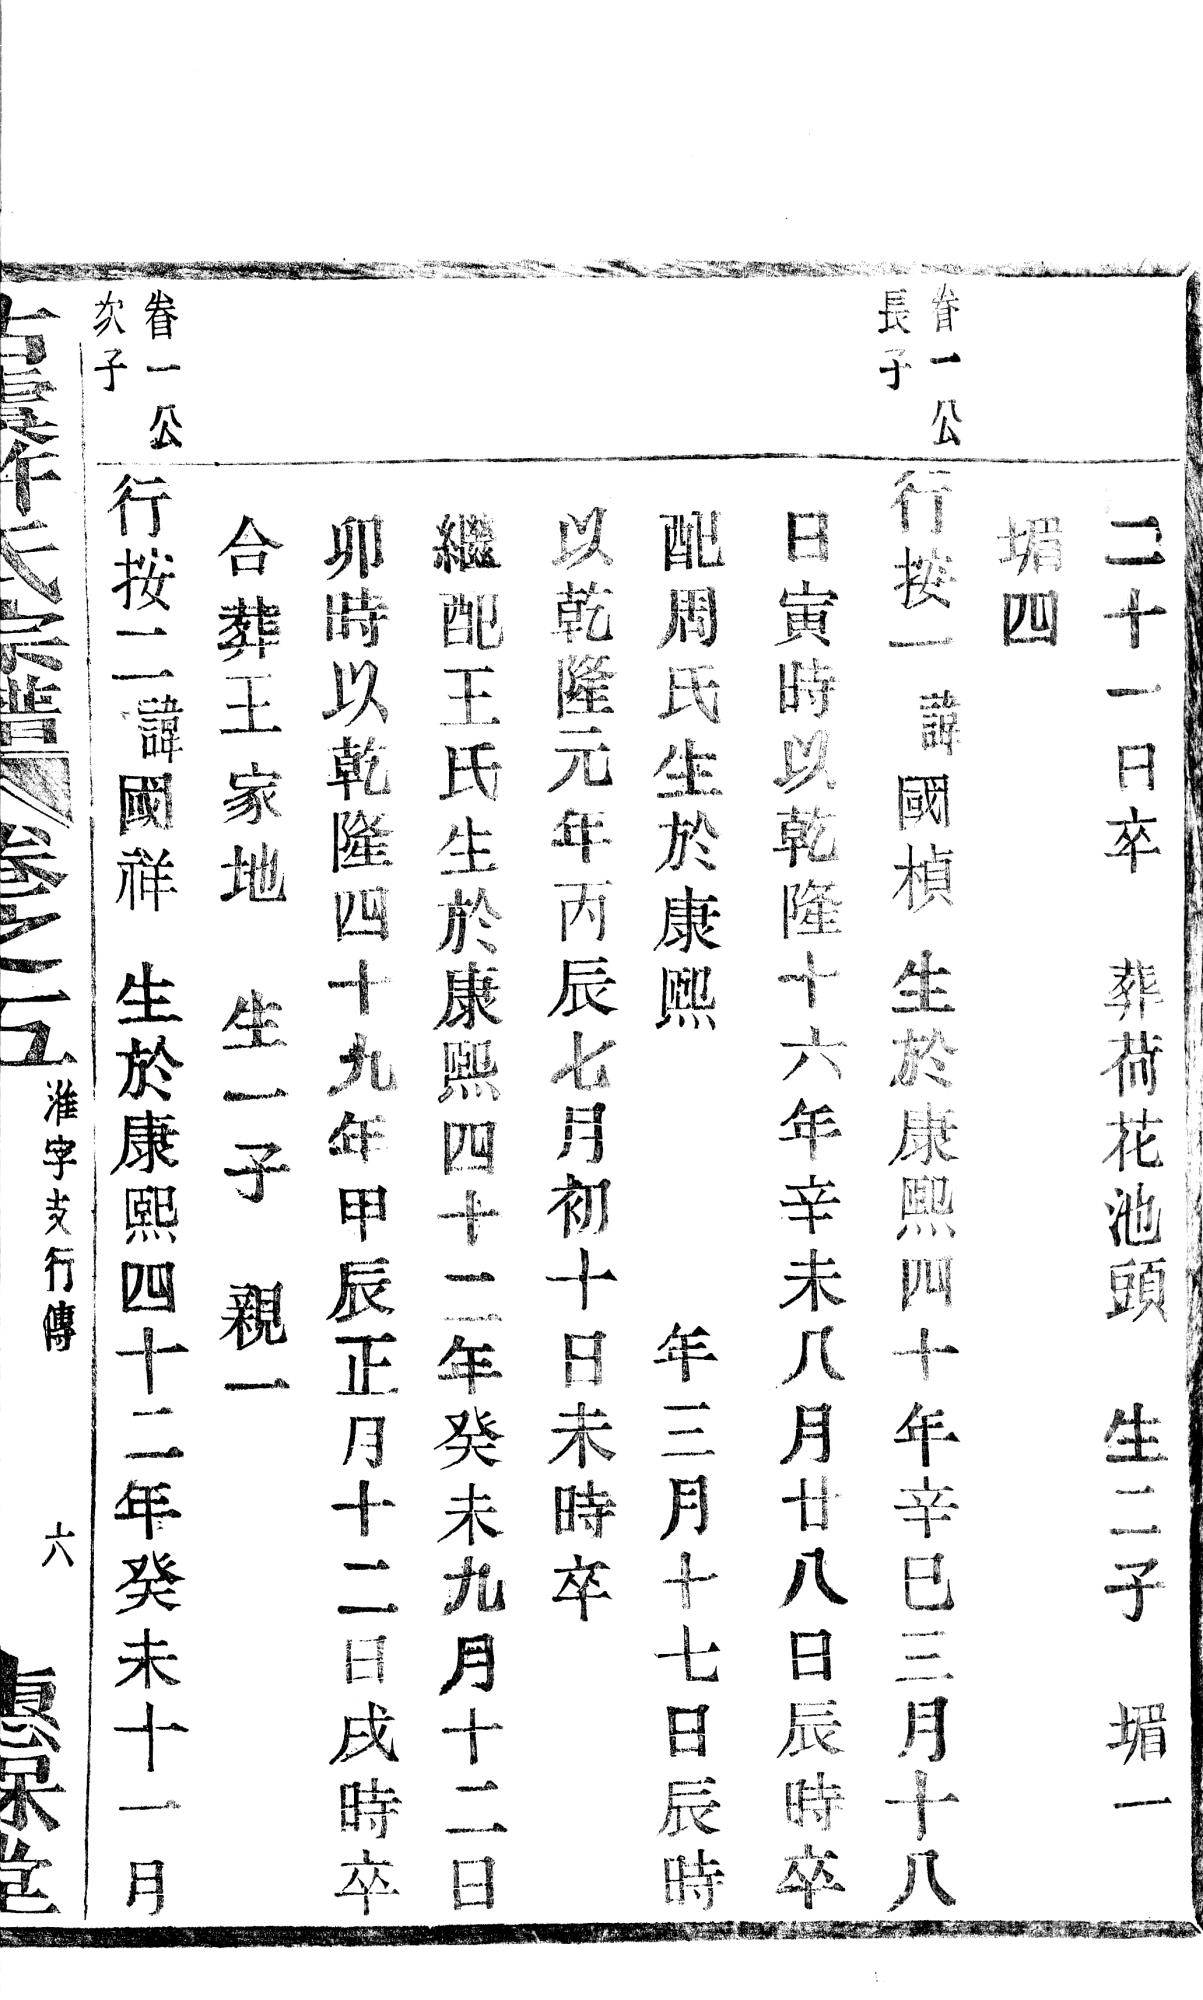 二十一日卒　葬荷花池頭　生二子　堳一
堳四
眷一公
長子
行按一諱國楨　生於康熙四十年辛巳三月十八
日寅時以乾隆十六年辛未八月廿八日辰時卒
配周氏生於康熙　　年三月十七日辰時
以乾隆元年丙辰七月初十日未時卒
繼配王氏生於康熙四十二年癸未九月十二日
卯時以乾隆四十九年甲辰正月十二日戌時卒
合葬王家地　生一子　親一
眷一公
次子
行按二諱國祥　生於康熙四十二年癸未十一月
氏宗譜　卷之五　淮字支行傳　六　惠保堂